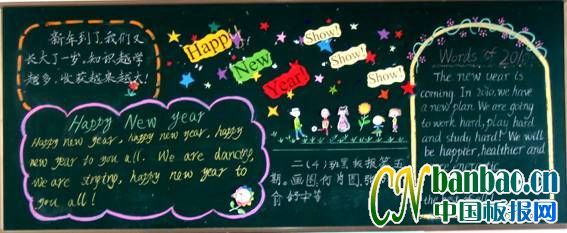 新年到了,我们又
长大了一岁,知识越学
越多,收获越来越大!
Happy
New
Year!
Show!
Show!
Show!
Happy New year
Happy new year, happy new year, happy
new year to you all. We are dancing,
we are singing, happy new year to
you all!
二(4)班黑板报第五
期。画图:何肖图,张
俞
Words of 20
The new year is
coming. In 2010, we have
a new plan. We are going
to work hard, play hard
and study hard! We will
be happier, healthier and
CN banbao.cn
中国板报网